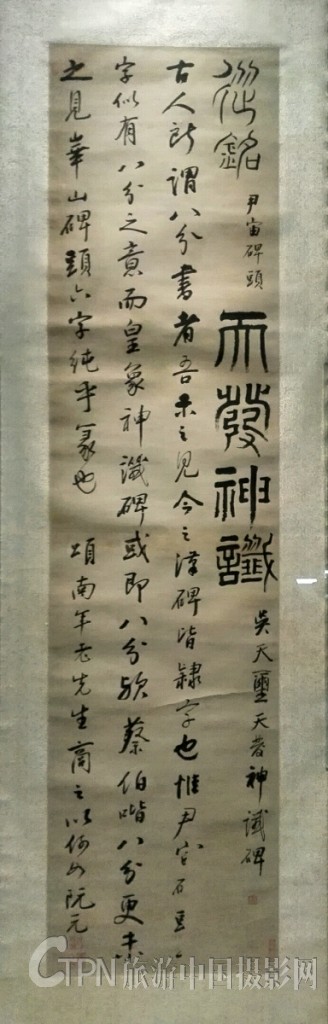 從銘 尹宙碑頭 天發神讖 吳天璽天發神讖碑
古人所謂八分書者吾未之見今之漢碑皆隸字也惟尹宙石
字似有八分之意而皇象神讖碑或即八分歟蔡伯喈八分更未
之見華山碑頭六字純乎篆也 頌南年老先生商之以何如 阮元
CTPN旅游中国摄影网